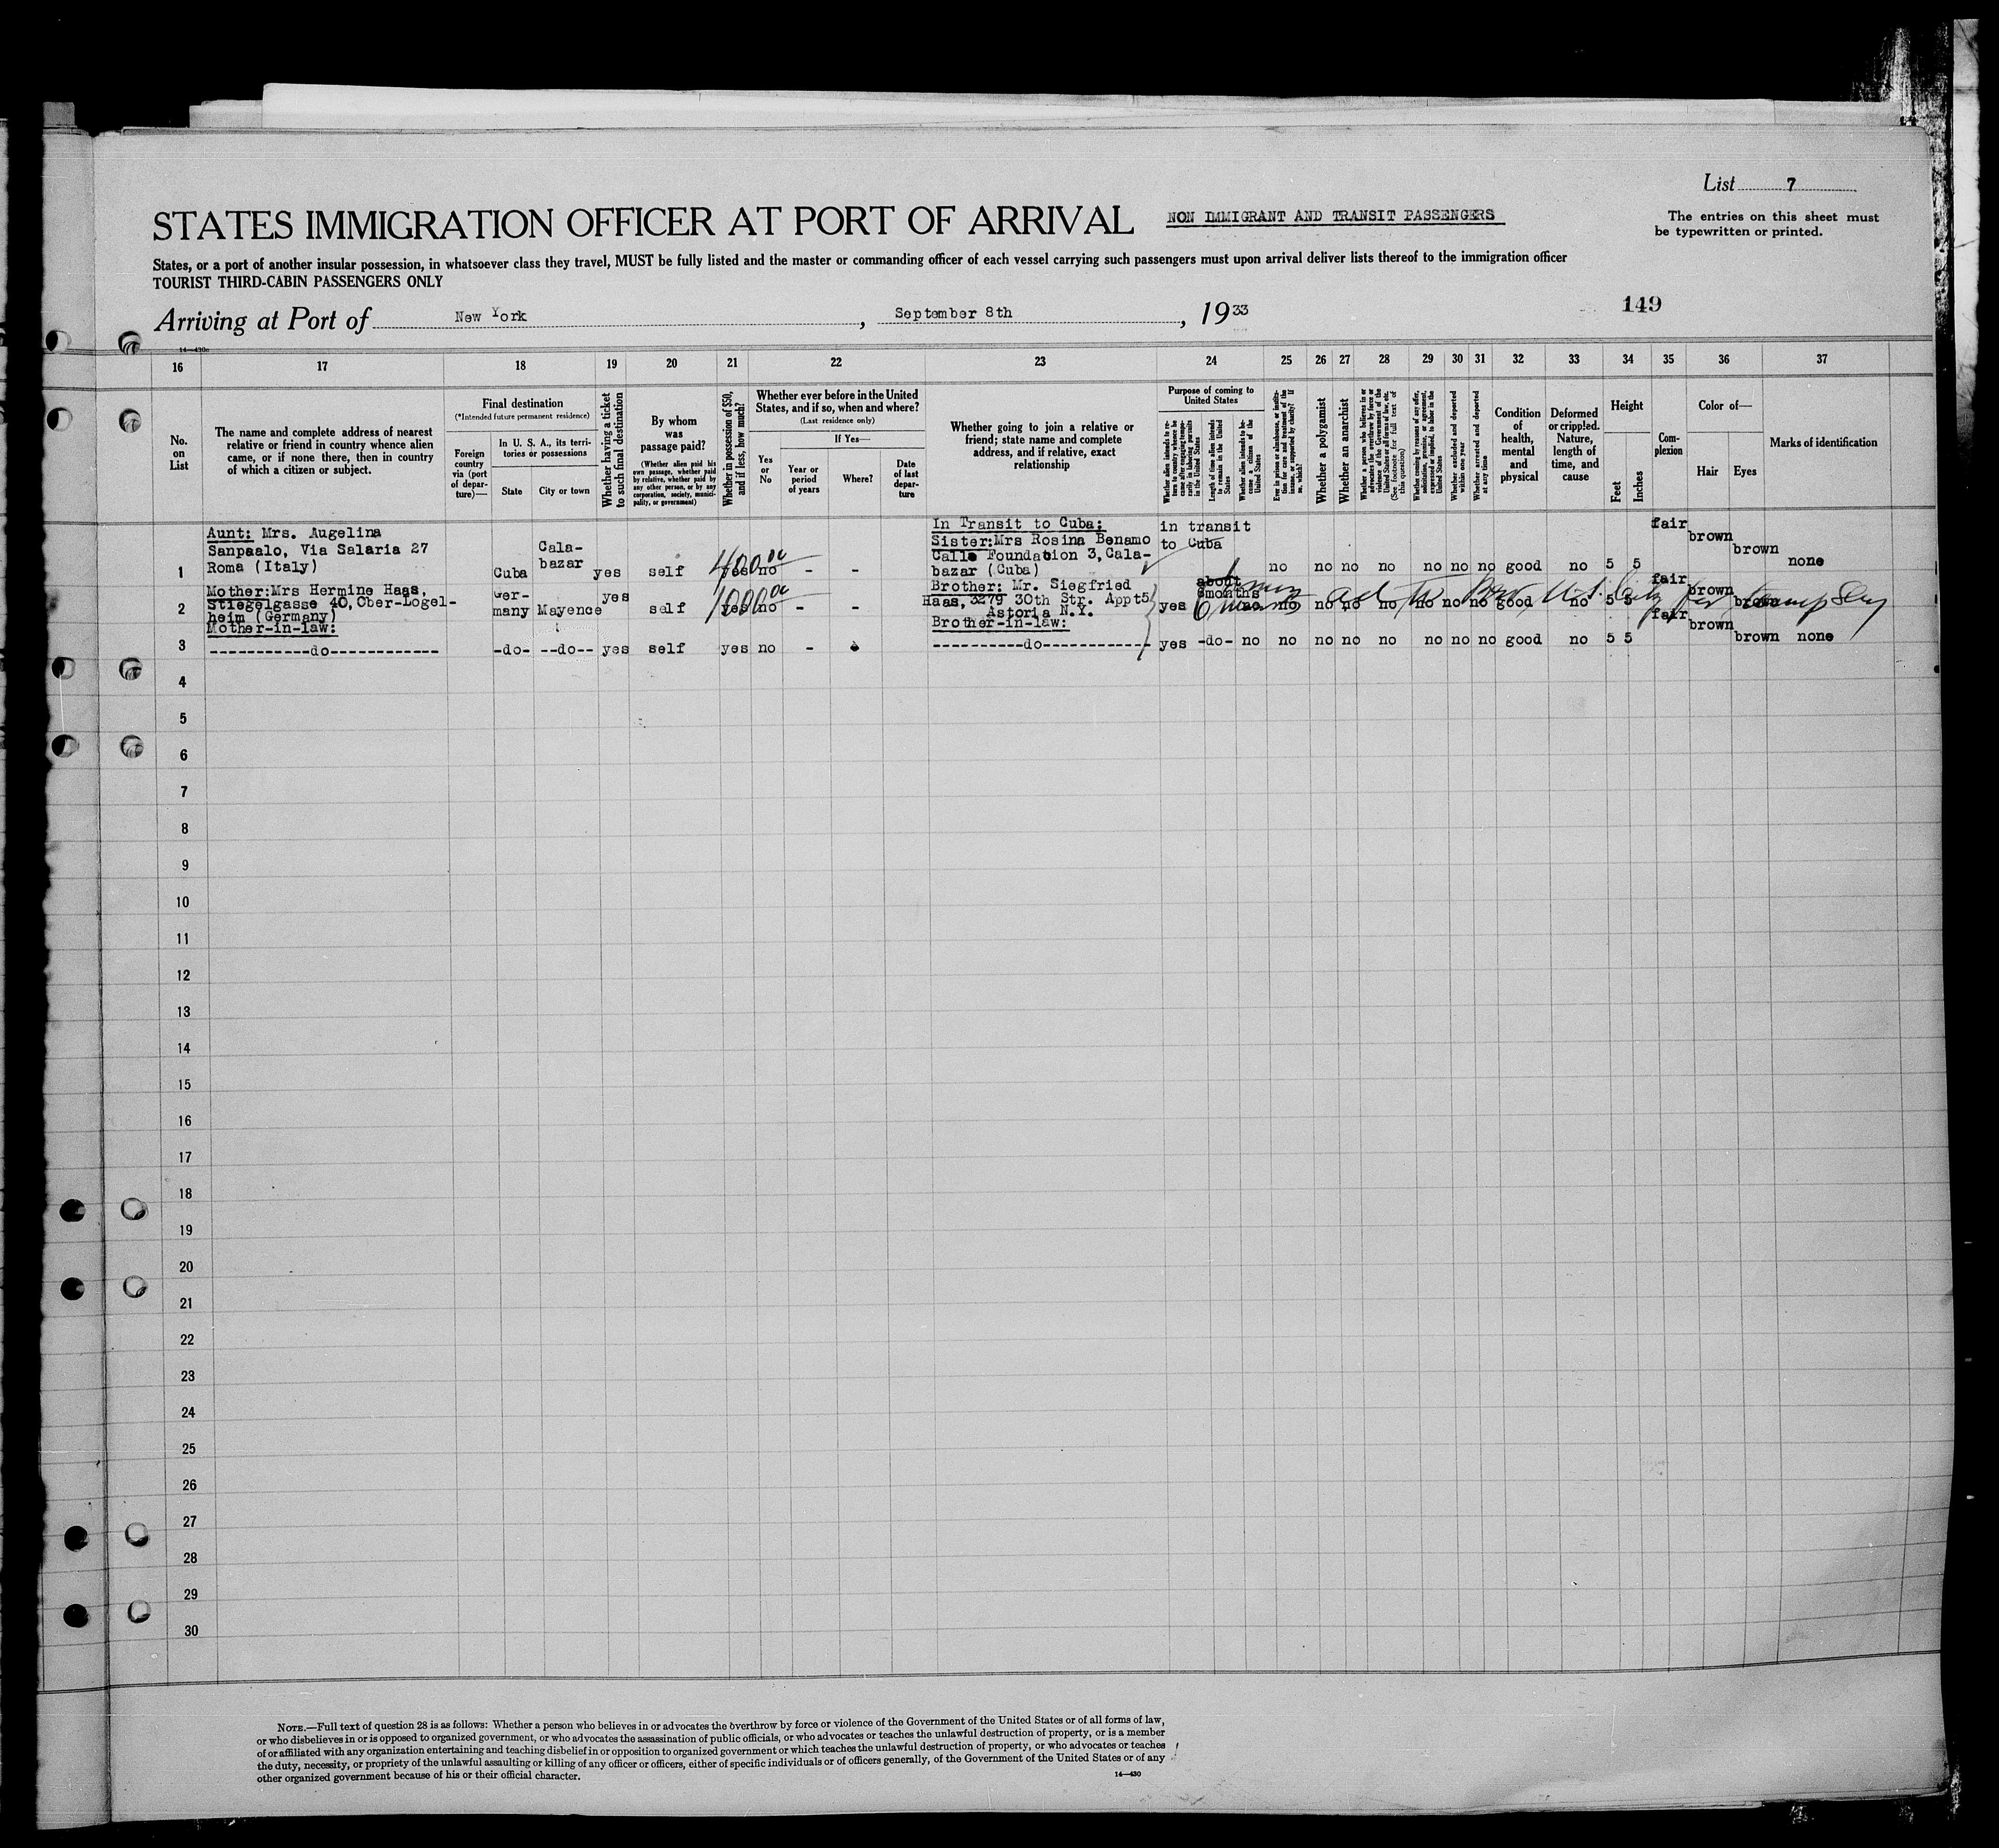 List 7
STATES IMMIGRATION OFFICER AT PORT OF ARRIVAL NON IMMIGRANT AND TRANSIT PASSENGERS
The entries on this sheet must
be typewritten or printed.
States, or a port of another insular possession, in whatsoever class they travel, MUST be fully listed and the master or commanding officer of each vessel carrying such passengers must upon arrival deliver lists thereof to the immigration officer
TOURIST THIRD-CABIN PASSENGERS ONLY
149
Arriving at Port of New York, September 8th, 1933
14—430c
16 17 18 19 20 21 22 23 24 25 26 27 28 29 30 31 32 33 34 35 36 37
No.
on
List
The name and complete address of nearest
relative or friend in country whence alien
came, or if none there, then in country
of which a citizen or subject.
Final destination
(*Intended future permanent residence)
Foreign
country
via (port
of depar-
ture)—
In U. S. A., its terri-
tories or possessions
State
City or town
Whether having a ticket
to such final destination
By whom
was
passage paid?
(Whether alien paid his
own passage, whether paid
by relative, whether paid by
any other person, or by any
corporation, society, munici-
pality, or government)
Whether in possession of $50,
and if less, how much?
Whether ever before in the United
States, and if so, when and where?
(Last residence only)
Yes
or
No
If Yes—
Year or
period
of years
Where?
Date
of last
depar-
ture
Whether going to join a relative or
friend; state name and complete
address, and if relative, exact
relationship
Purpose of coming to
United States
Whether alien intends to re-
turn to country whence he
came after engaging tempo-
rarily in laboring pursuits
in the United States
Length of time alien intends
to remain in the United
States
Whether alien intends to be-
come a citizen of the
United States
Ever in prison or almshouse, or institu-
tion for care and treatment of the
insane, or supported by charity? If
so, which?
Whether a polygamist
Whether an anarchist
Whether a person who believes in or
advocates the overthrow by force or
violence of the Government of the
United States or all forms of law, etc.
(See footnote for full text of
this question)
Whether coming by reason of any offer,
solicitation, promise, or agreement,
expressed or implied, to labor in the
United States
Whether excluded and deported
within one year
Whether arrested and deported
at any time
Condition
of
health,
mental
and
physical
Deformed
or crippled.
Nature,
length of
time, and
cause
Height
Feet
Inches
Com-
plexion
Color of—
Hair
Eyes
Marks of identification
1
Aunt: Mrs. Augelina
Sanpaalo, Via Salaria 27
Roma (Italy)
Cuba
Cala-
bazar
yes self 400.00 yes no - -
In Transit to Cuba:
Sister:Mrs Rosina Benamo
Calle Foundation 3, Cala-
bazar (Cuba)
in transit
to Cuba
no no no no no no no good no 5 5 fair brown brown none
2
Mother:Mrs Hermine Haas,
Stiegelgasse 40, Ober-Logel-
heim (Germany)
Ger-
many Mayence yes self 1000.00 yes no - -
Brother: Mr. Siegfried
Haas, 3279 30th Str. Appt5
Astoria N.Y.
yes about
6months
no no no no no no no no good no 5 5 fair brown brown
3
Mother-in-law:
-----------do------------
-do- --do-- yes self yes no -
Brother-in-law:
----------do-----------
yes -do- no no no no no no no no good no 5 5 fair brown brown none
4
5
6
7
8
9
10
11
12
13
14
15
16
17
18
19
20
21
22
23
24
25
26
27
28
29
30
NOTE.—Full text of question 28 is as follows: Whether a person who believes in or advocates the overthrow by force or violence of the Government of the United States or of all forms of law,
or who disbelieves in or is opposed to organized government, or who advocates the assassination of public officials, or who advocates or teaches the unlawful destruction of property, or is a member
of or affiliated with any organization entertaining and teaching disbelief in or opposition to organized government or which teaches the unlawful destruction of property, or who advocates or teaches
the duty, necessity, or propriety of the unlawful assaulting or killing of any officer or officers, either of specific individuals or of officers generally, of the Government of the United States or of any
other organized government because of his or their official character.
14—430